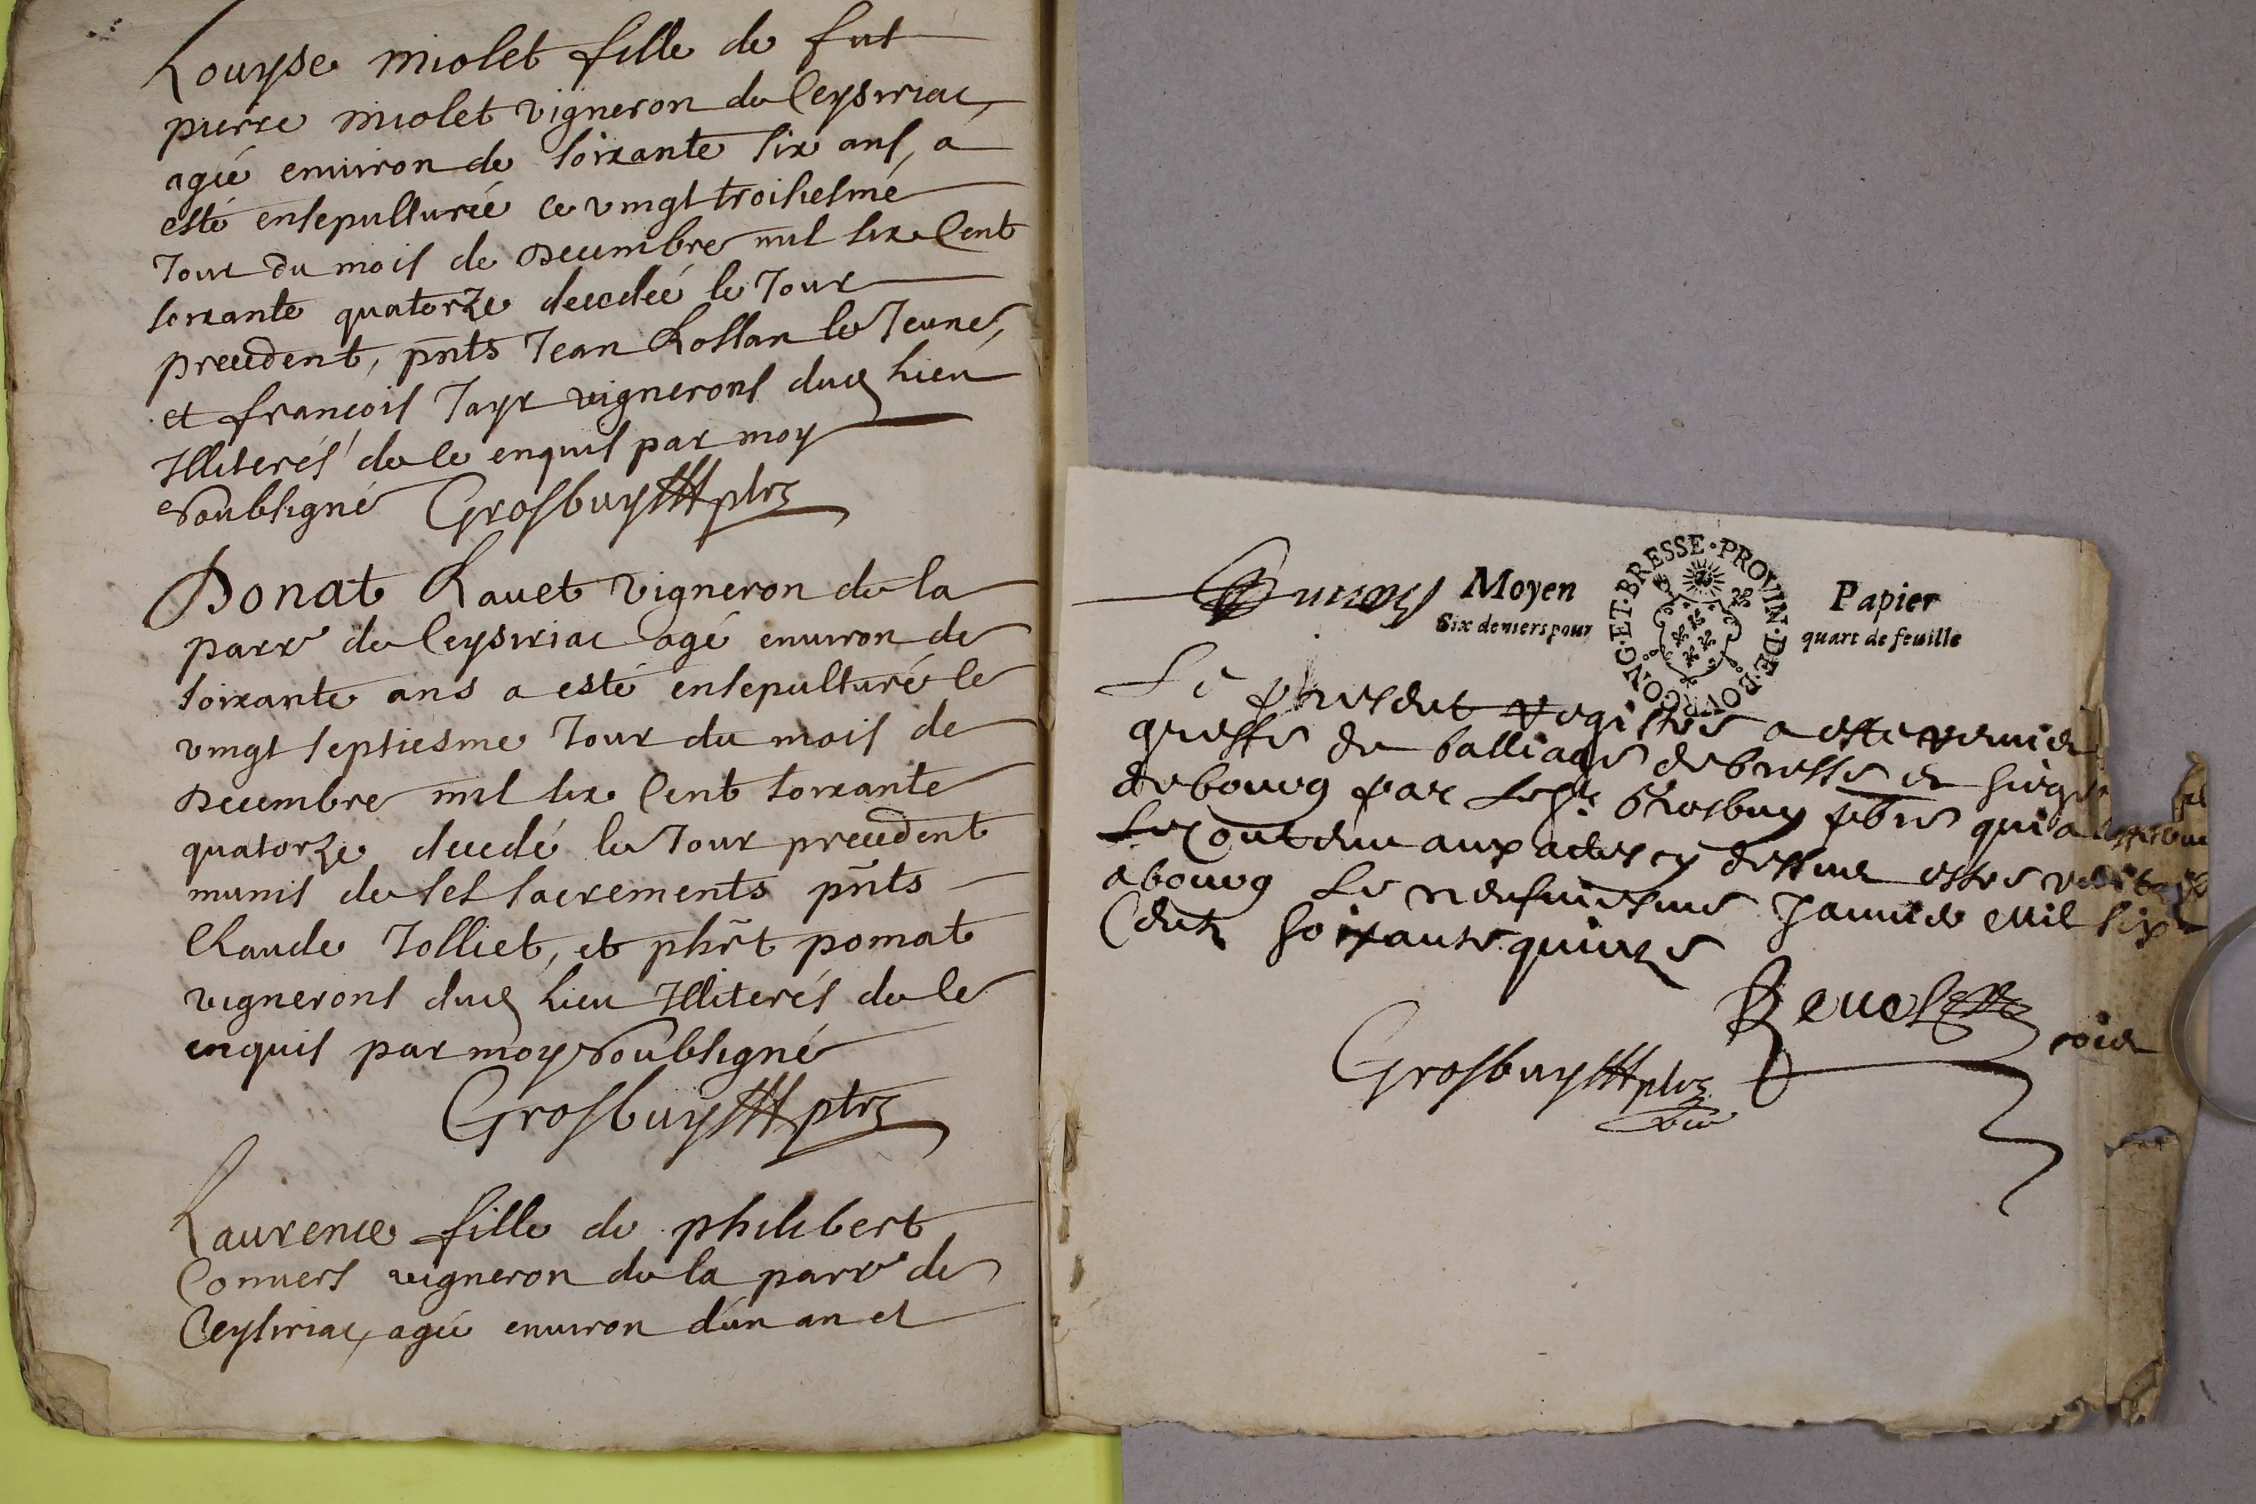 Louyse miolet fille de fut
pierre miolet vigneron de Ceysiriac,
agée environ de soixante six ans, a
esté ensepulturée ce vingt troisiesme
Jour du mois de Decembre mil six Cent
soixante quatorze decedée le Jour
precedent, pnts Jean Rossan le Jeune,
et françois Jayr vignerons dud lieu
Illiterés de ce enquis par moy
soubsigné Grosbuy ptre
Donat Ravet vigneron de la
parr de Ceysiriac agé environ de
soixante ans a esté ensepulturé le
vingt septiesme Jour du mois de
Decembre mil six Cent soixante
quatorze decedé le Jour precedent
munis de ses sacrements pnts
Claude Jolliet, et phrt pomat
vignerons dud lieu Illiterés de ce
enquis par moy soubsigné
Grosbuy ptre
Laurence fille de philibert
Convers vigneron de la parr de
Ceysiriac, agée environ d'un an et
Moyen Papier
Six deniers pour quart de feuille
PROVIN·DE·BOVRGONG·ET·BRESSE·
Le present registre a esté remis
greffe du balliage de bresse et siege
de bourg par Grosbuy pbre qui a
le contenu aux actes cy dessus estre
a bourg le neufviesme Janvier mil six
Cent soixante quinze
Grosbuy ptre